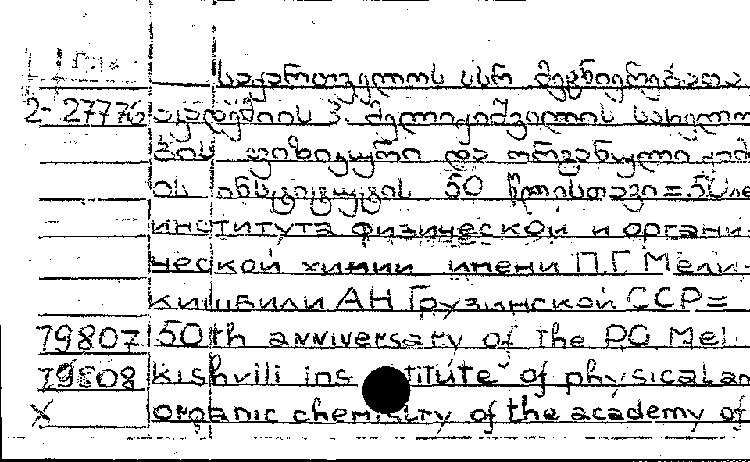 საქართველოს სსრ მეცნიერებათა
2-27776 აკადემიის პ. მელიქიშვილის სახელო
ბის ფიზიკური და ორგანული ქიმი
ის ინსტიტუტის 50 წლისთავი=50 ле
института физической и органи
ческой химии имени П.Г Мели
кишвили АН Грузинской ССР=
79807 50th anniversary of the PG Mel
79808 kishvili ins titute of physical an
X organic chemistry of the academy of